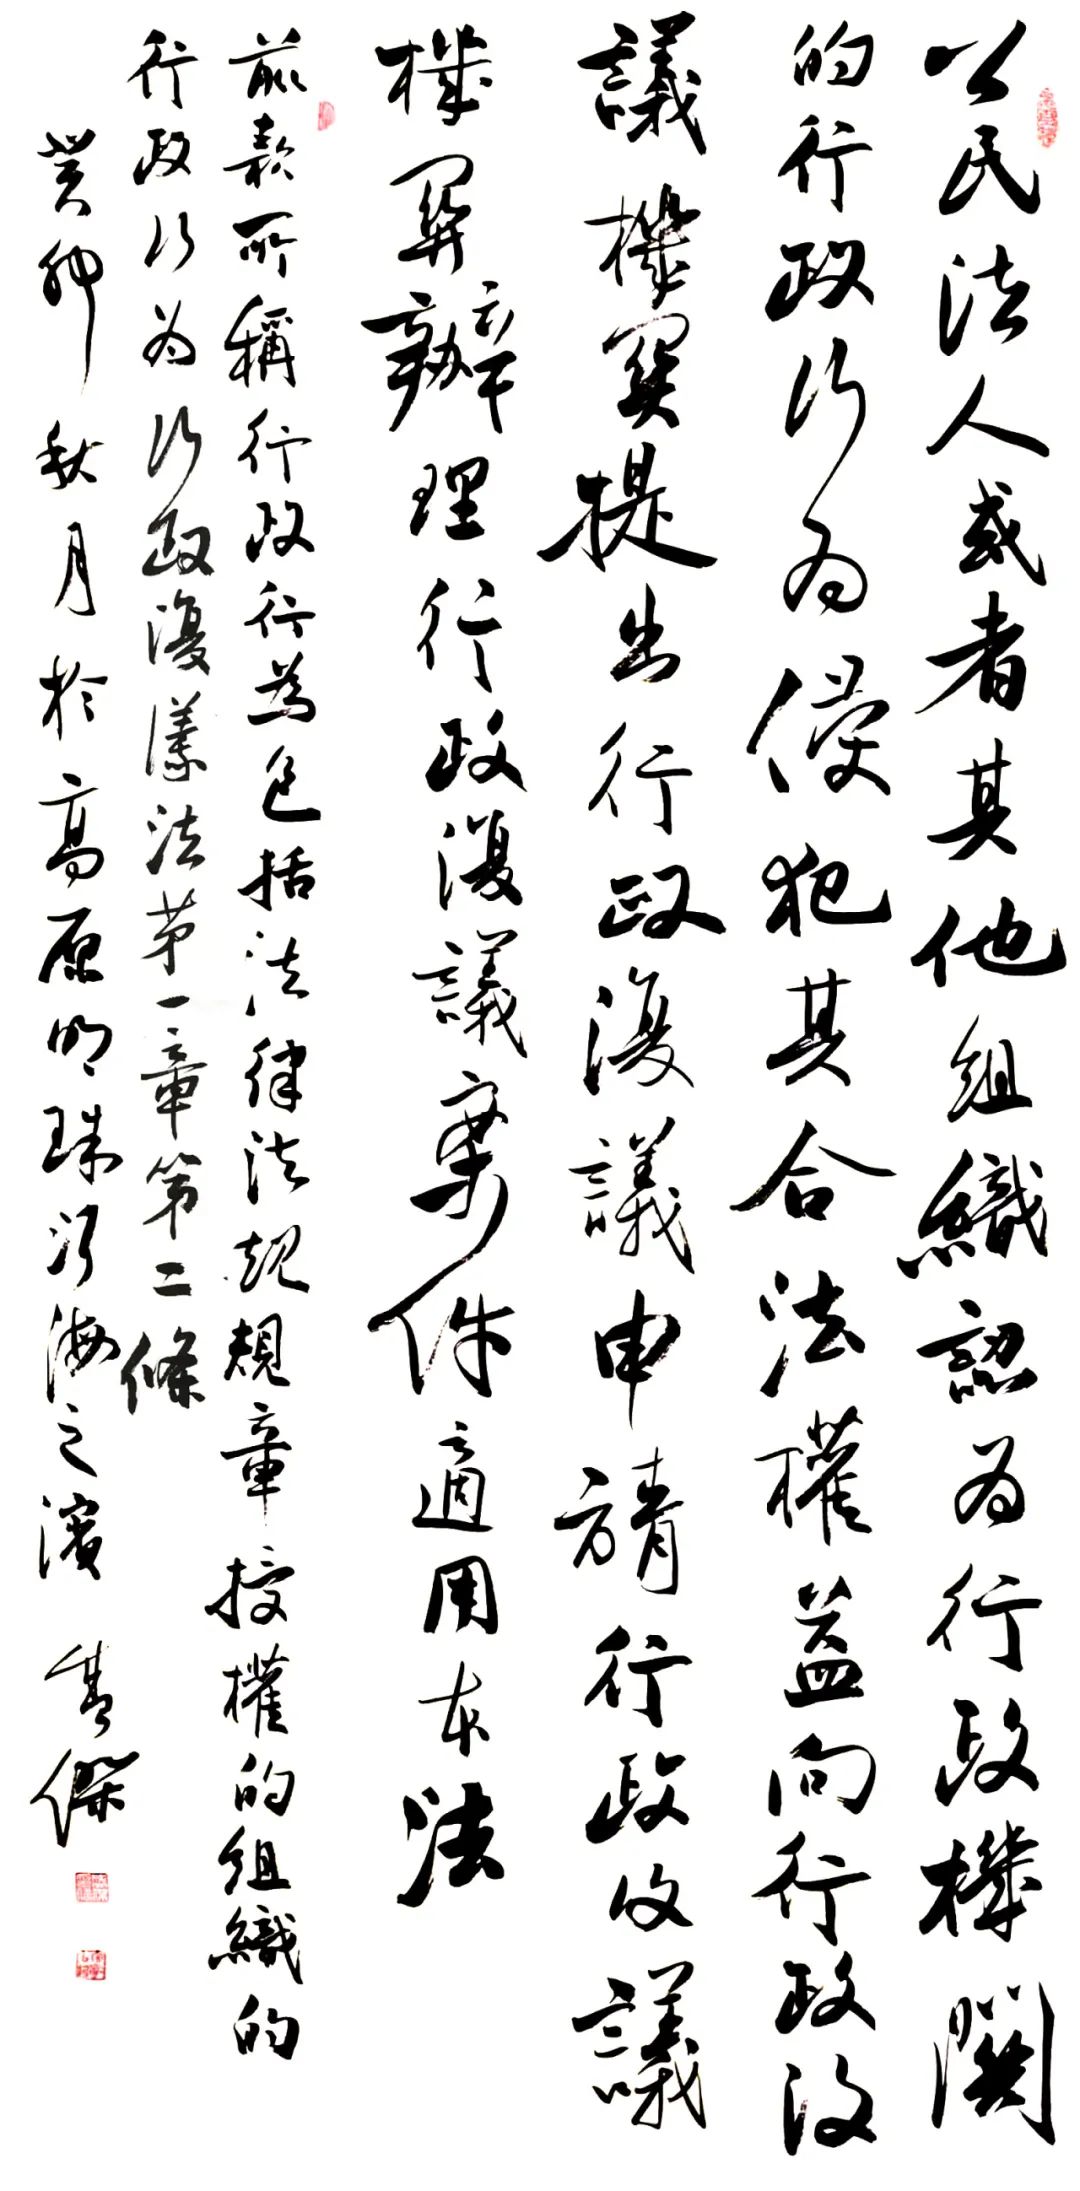 公民法人或者其他組織認为行政機關
的行政行为侵犯其合法權益向行政復
議機関提出行政復議申請行政復議
機関辦理行政復議案件適用本法
前款所稱行政行為包括法律法規規章授權的組織的
行政行为行政復議法第一章第二條
癸卯秋月於高原明珠河海之濱